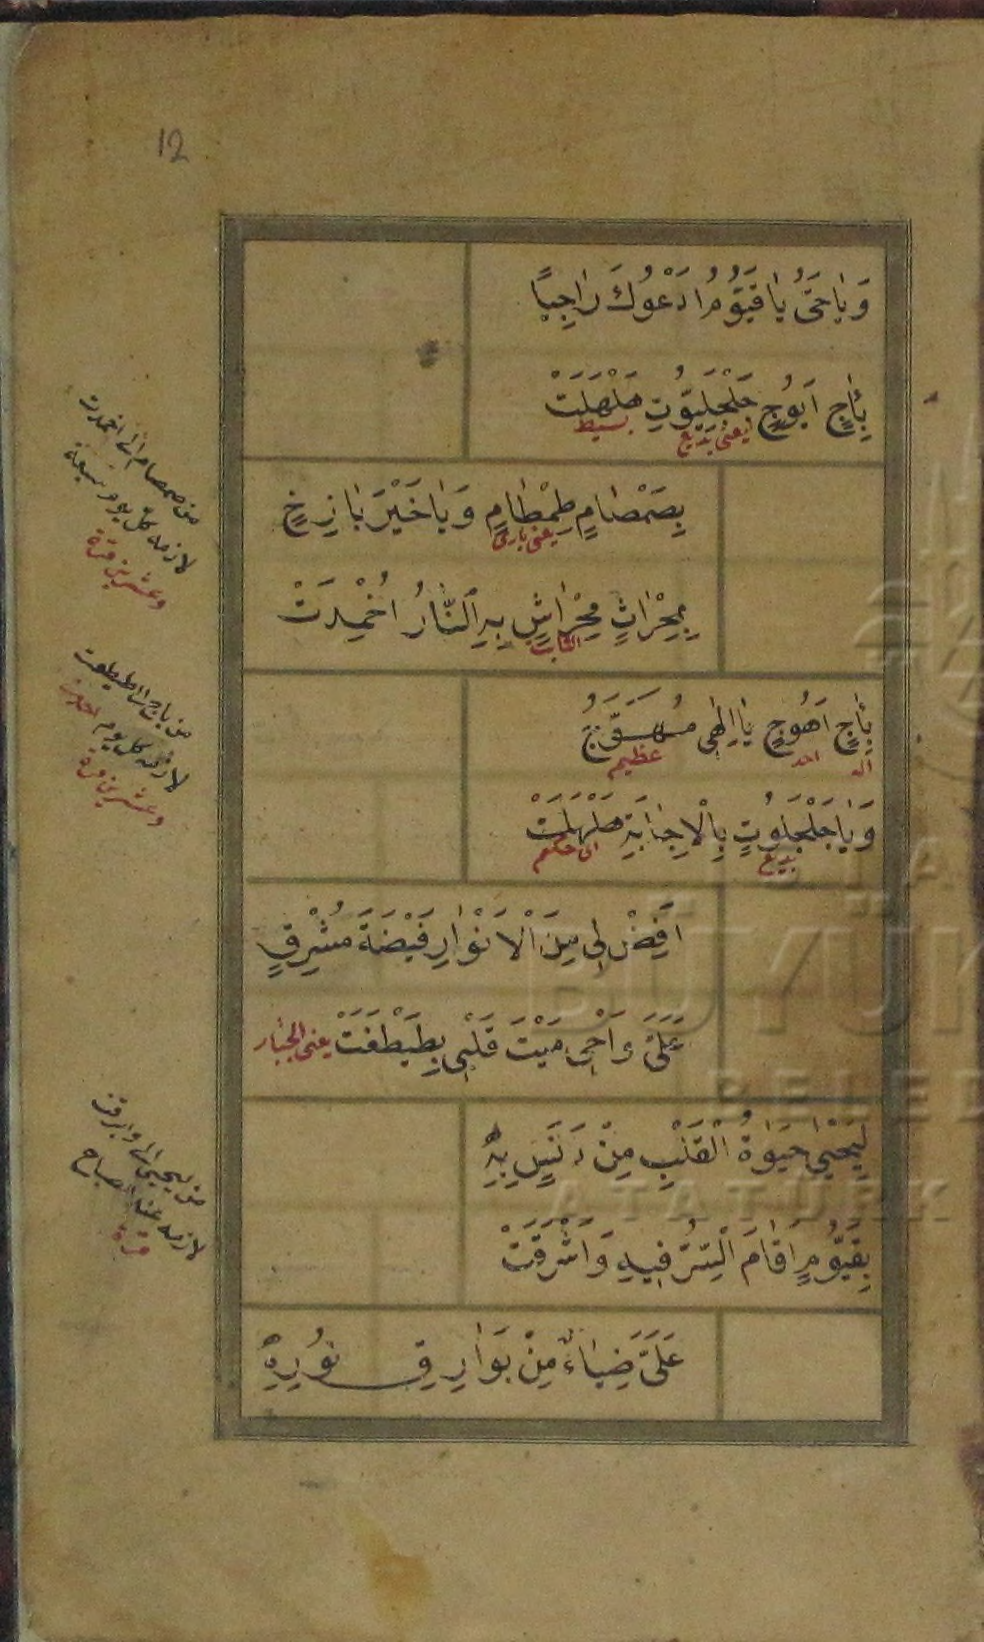 12
وَيَا حَيُّ يَا قَيُّومُ اَدْعُوكَ رَاجِيًا
بِأٰجٍ اَيُوجٍ جَلْجَلِيُّوتِ هَلْهَلَتْ
يعنى بديع
بسيط
بِصَمْصَامٍ طِمْطَامٍ وَيَا خَيْرَ بَازِخٍ
يعنى بارى
بِمِحْرَاثٍ مِحْرَاشٍ بِهِ النَّارُ اُخْمِدَتْ
الثابت
بِأٰجٍ اَهُوجٍ يَا اِلٰهِى مُهَوَّجُ
اله
احد
عظيم
وَيَا جَلْجَلُوتٍ بِالْاِجَابَةِ هَلْهَلَتْ
بديع
اى حكيم
اَفِضْ لِى مِنَ الْاَنْوَارِ فَيْضَةَ مُشْرِقٍ
عَلَىَّ وَاَحْىِ مَيْتَ قَلْبِى بِطَيْطَغَتْ يعنى الجبار
لِيَحْيٰى حَيٰوةُ الْقَلْبِ مِنْ دَنَسٍ بِهِ
بِقَيُّومٍ اَقَامَ السِّرَّ فِيهِ وَاَشْرَقَتْ
عَلَىَّ ضِيَاءٌ مِنْ بَوَارِقِ نُورِهِ
من صمصام الى اخمدت
لازمه كل يوم وسبعة
وعشرين مرة
من بأج الى طيطغت
لازمه كل يوم احد
وعشرين مرة
من ليحيى الى وابرقت
لازمه عند الصباح
مرة
İSTA
BÜYÜK
BELED
ATATÜRK